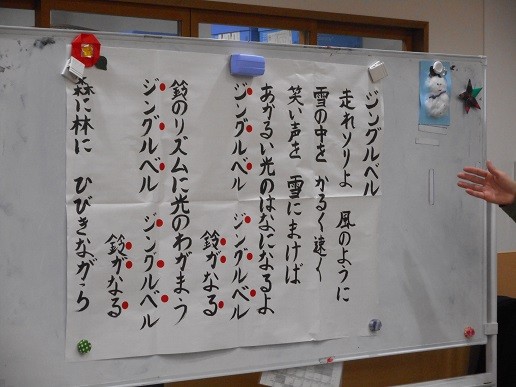 ジングルベル
走れソリよ　風のように
雪の中を　かるく速く
笑い声を　雪にまけば
あかるい光のはなになるよ
ジングルベル　ジングルベル
鈴がなる
鈴のリズムに光のわがまう
ジングルベル　ジングルベル
鈴がなる
森に林に　ひびきながら